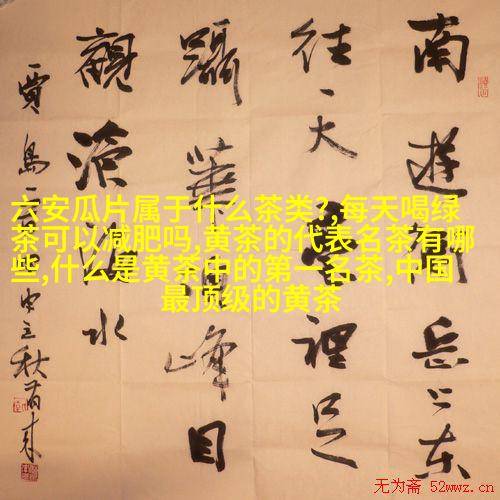 南遊衡岳上东
往天裡足
躡華峰目
觀滄水
賈島
立秋
六安瓜片属于什么茶类?,每天喝绿
茶可以减肥吗,黄茶的代表名茶有哪
些,什么是黄茶中的第一名茶,中国
最顶级的黄茶
无为斋 52wwz.cn